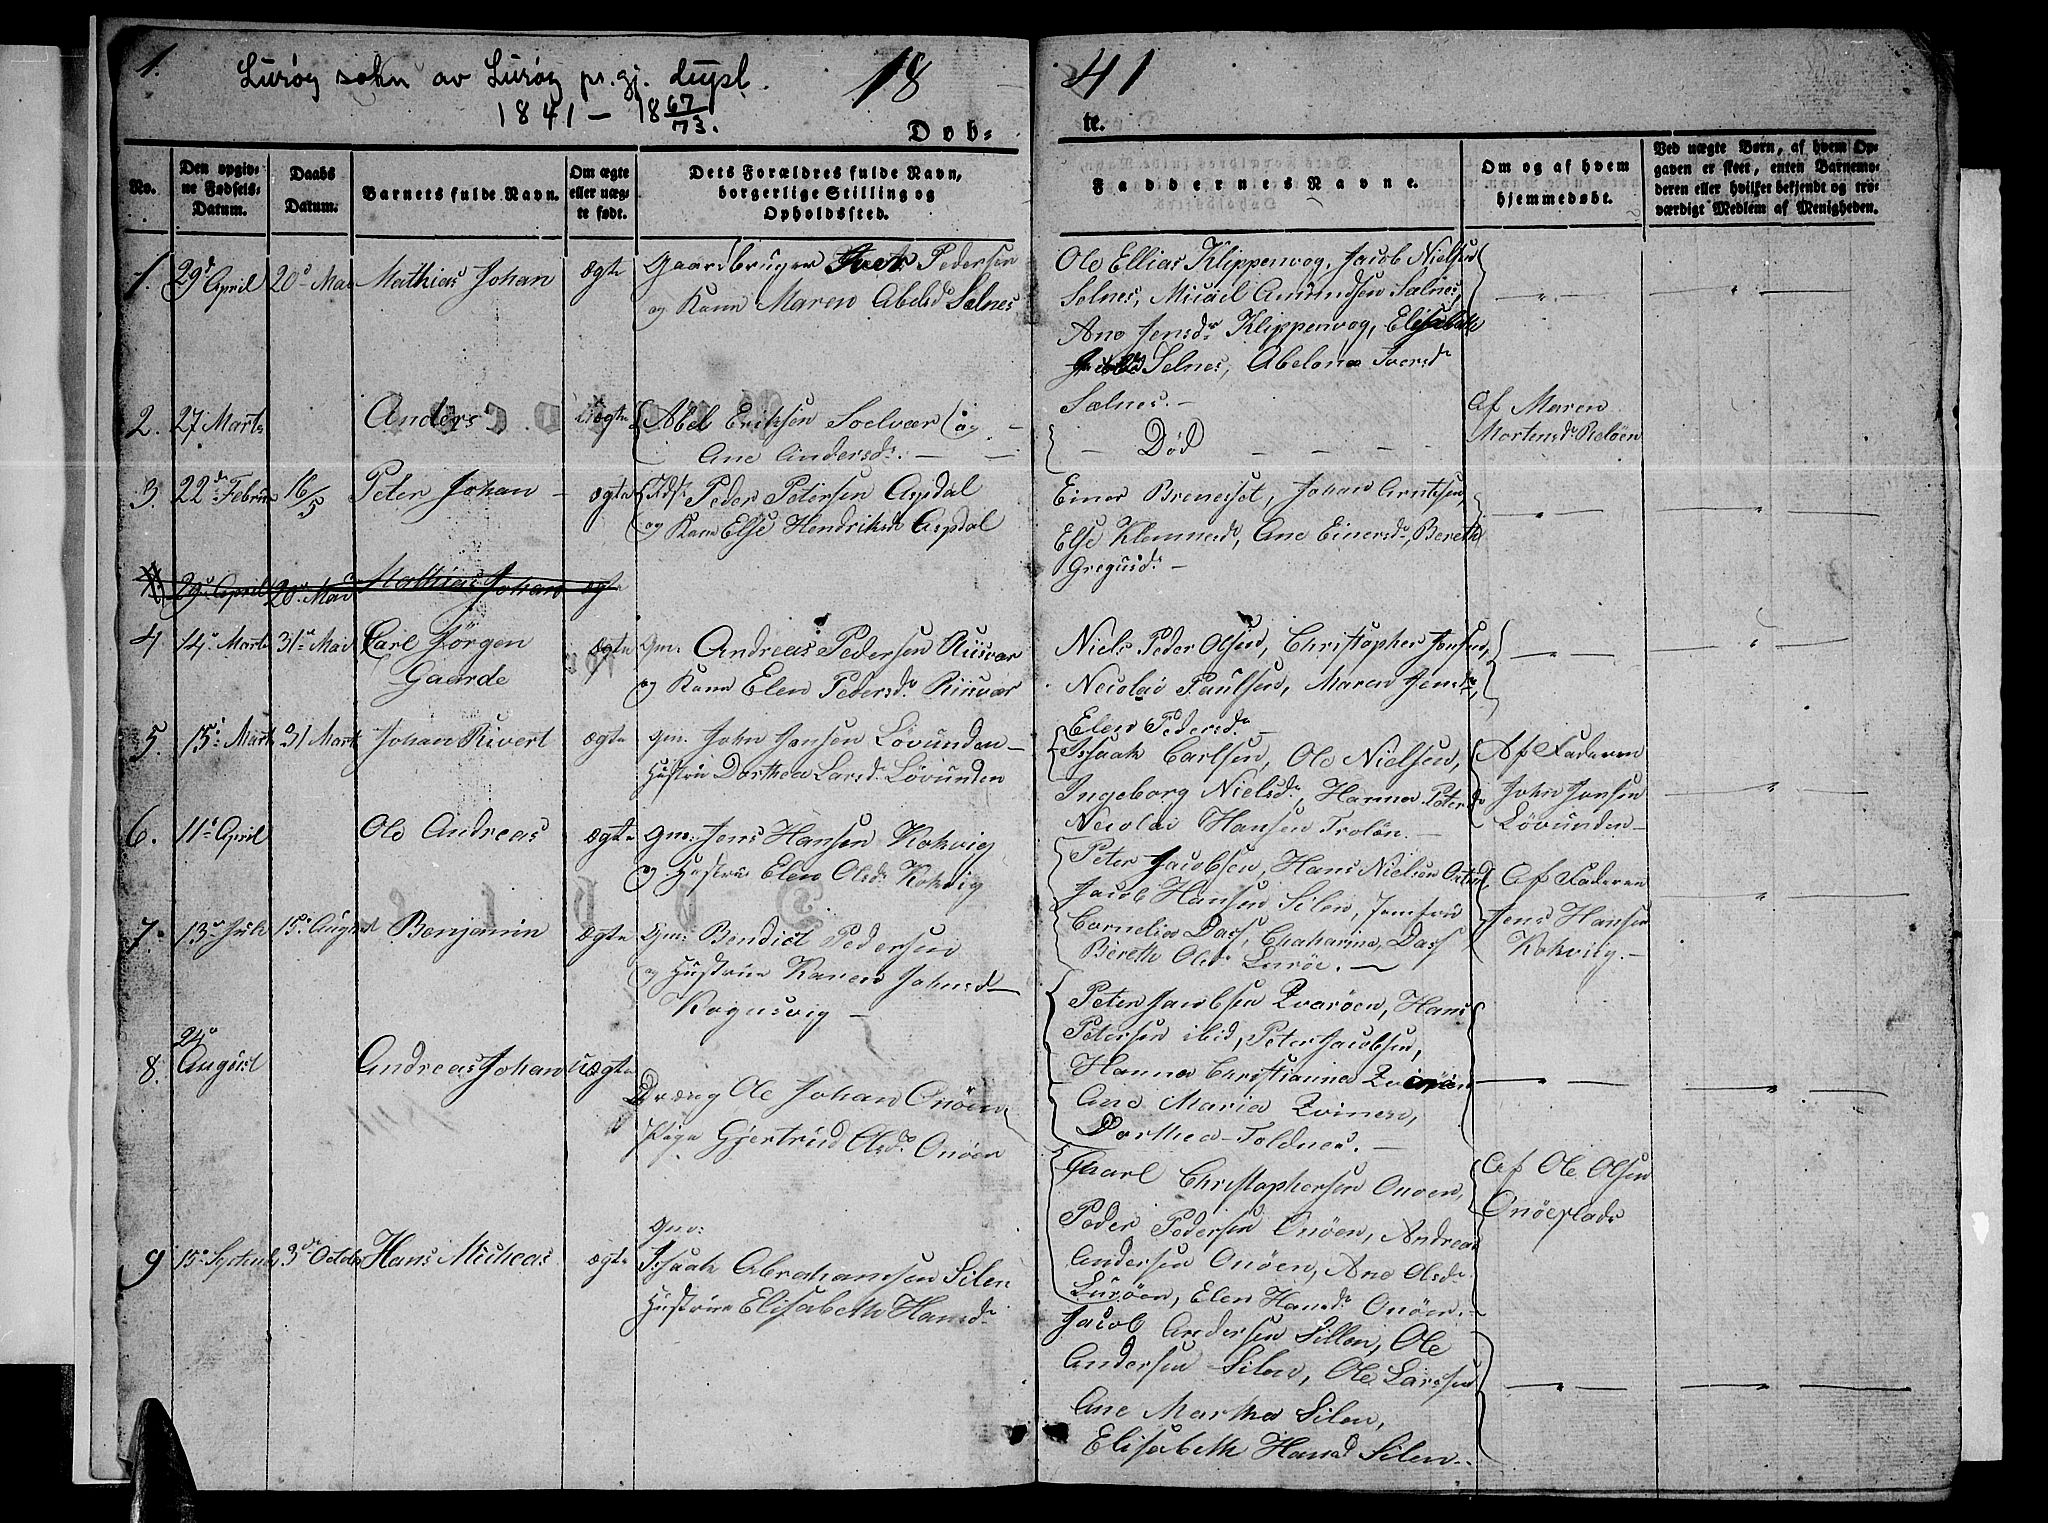 1.
Lurøy sokn av Lurøy pr.gj. dupl.
1841 - 1867/73.
18
41
Døb-
te.
No.
Den opgiv-
ne Fødsels-
Datum.
Daabs
Datum.
Barnets fulde Navn.
Om ægte
eller uæg-
te født.
Dets Forældres fulde Navn,
borgerlige Stilling og
Opholdssted.
Faddernes Navne.
Om og af hvem
hjemmedøbt.
Ved uægte Børn, af hvem Op-
gaven er skeet, enten Barnemo-
deren eller hvilket bekjendt og tro-
værdigt Medlem af Menigheden.
1. 29de April 20de Mai Mathias Johan ægte Gaardbruger Pedersen
og Kone Maren Abelsdr Selnes
Ole Ellias Klippenvog, Jacob Nielsen
Selnes, Micael Amundsen Selnes,
Ane Jensdr Klippenvog, Elisabeth
Selnes, Abelone Iversdr
Selnes.
2. 27 Marts Anders uægte Abel Eriksen Soelvær og
Ane Andersdr.
Død
Af Maren
Mortensdr. Reløen
3. 22de Februar 16/5 Peter Johan ægte Peder Petersen Aspdal
og Kone Else Hendriksdr Aspdal
Einer Brenesset, Johan Arntsen,
Else Klemmesdr, Ane Einersdr, Bereth
Gregusdr
29de April 20de Mai Mathias Johan ægte
4 14de Marts 31te Mai Carl Jörgen
Gaarde
ægte Gm. Andreas Pedersen Riisvær
og Kone Elen Pedersdr. Riisvær
Niels Peder Olsen, Christopher Jonsen,
Nicolai Paulsen, Maren Jensdr,
Elen Pedersdr
5. 15de Marts 31 Marts Johan Rivert ægte Gm. John Jonsen Lövunden
Hustrue Dorthea Larsdr. Lövunden
Issaak Carlsen, Ole Nielsen,
Ingeborg Nielsdr, Hanna Petersdr
Nicolai Hansen Troløn.
Af Faderen
John Jonsen
Lövunden
6. 11te April Ole Andreas ægte Gm: Jens Hansen Kokvig
og Hustrue Elen Olsdr. Kokvig
Peter Jacobsen, Hans Nielsen
Jacob Hansen Silen, Jomfrue
Cornelia Dass, Chatharina Dass
Bereth Olsdr Luröe.
Af Faderen
Jens Hansen
Kokvig.
7. 13de Juli 15de August Benjamin ægte Gm: Bendict Pedersen
og Hustrue Karen Johnsdr
Kognesvig
Peter Jacobsen Qvarøen, Hans
Petersen ibid, Peter Jacobsen,
Hanna Christianna
Ane Maria Qvines,
Dorthea Foldnes.
8. 24de
August
Andreas Johan uægte
Dræng Ole Johan Onöen
Pige Gjertrud Olsdr. Onöen
Carl Christophersen Onøen,
Peder Pedersen Onöen, Andreas
Andersen Onöen, Ane Olsdr
Luröen, Elen Hansdr. Onöen.
Af Ole Olsen
Onöeplads
9 15de Septemb. 3de October Hans Micheas ægte
Gm:
Issaak Abrahamsen Silen
Hustrue Elisabeth Hansdr
Jacob Andersen Sillen, Ole
Andersen Silen, Ole Larssen
Ane Martha Silen,
Elisabeth Hansd Silen.